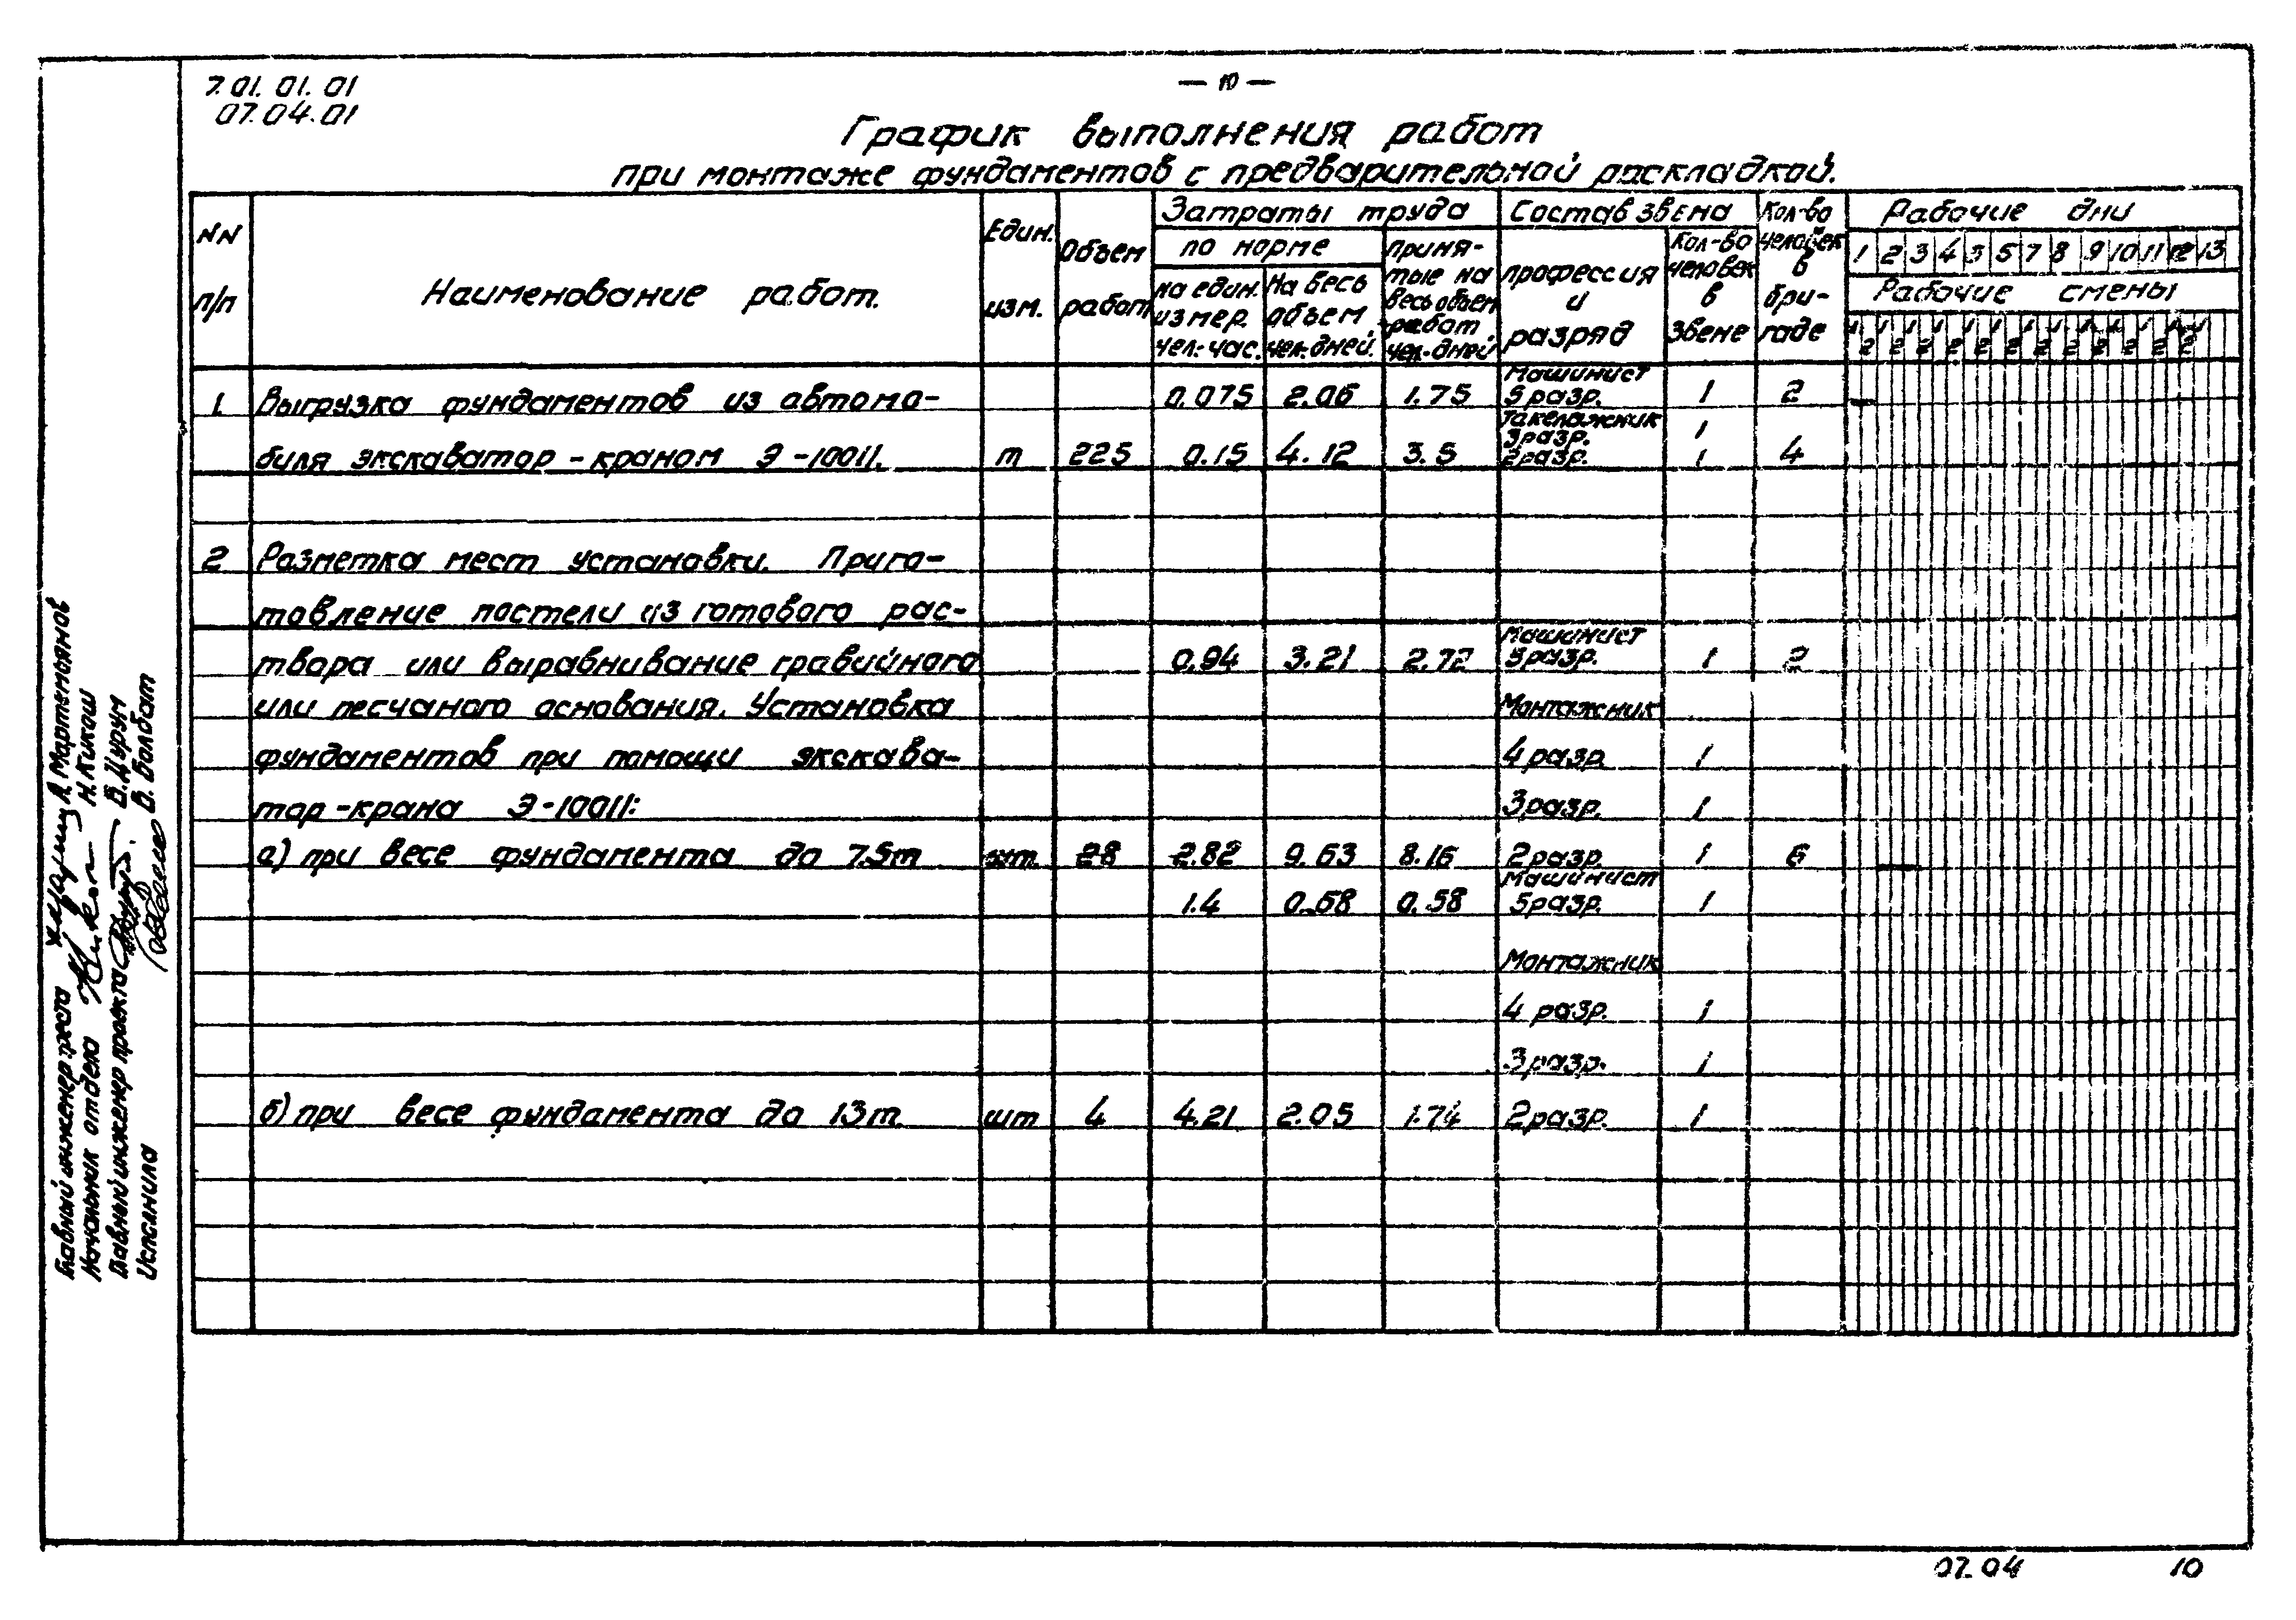 7.01.01.01
07.04.01
— 10 —
График выполнения работ
при монтаже фундаментов с предварительной раскладкой.
NN п/п
Наименование работ.
Един. изм.
Объем работ
Затраты труда
по норме
на един. измер. чел.-час.
На весь объем чел.-дней.
приня-
тые на
весь объем
работ
чел.-дней
Состав звена
профессия
и
разряд
Кол-во
человек
в
звене
Кол-во
человек
в
бри-
гаде
Рабочие дни
1 2 3 4 5 5 7 8 9 10 11 12 13
Рабочие смены
1 1 1 1 1 1 1 1 1 1 1 1 1
2 2 2 2 2 2 2 2 2 2 2 2
Машинист
1 Выгрузка фундаментов из автомо- 0.075 2.06 1.75 5 разр. 1 2
Такелажник
3 разр. 1
биля экскаватор-краном Э-10011. т 225 0.15 4.12 3.5 2 разр. 1 4
2 Разметка мест установки. Приго-
товление постели из готового рас-
Машинист
твора или выравнивание гравийного 0.94 3.21 2.72 5 разр. 1 2
или песчаного основания. Установка Монтажник
фундаментов при помощи экскава- 4 разр. 1
тор-крана Э-10011: 3 разр. 1
а) при весе фундамента до 7.5т шт. 28 2.82 9.63 8.16 2 разр. 1 6
Машинист
1.4 0.68 0.58 5 разр. 1
Монтажник
4 разр. 1
3 разр. 1
б) при весе фундамента до 13т. шт 4 4.21 2.05 1.74 2 разр. 1
Главный инженер треста А. Мартемьянов
Начальник отдела Н. Кикош
Главный инженер проекта В. Цурум
Исполнила В. Болбат
07.04 10